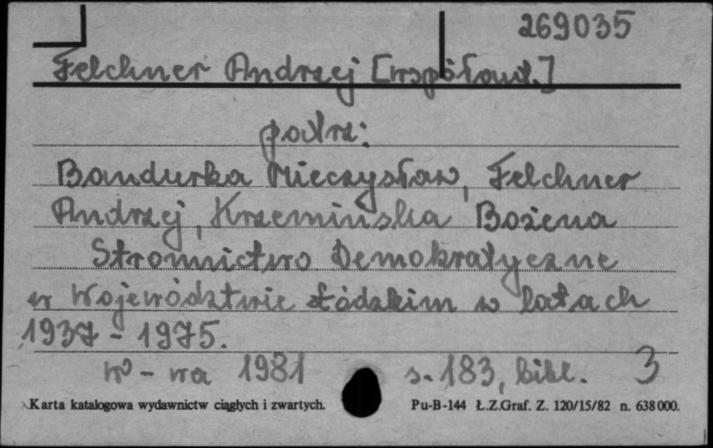 269035
Felchner Andrzej [współaut.]
patrz:
Bandurka Mieczysław, Felchner
Andrzej, Krzemińska Bożena
Stronnictwo Demokratyczne
w Województwie Łódzkim w latach
1937 - 1975.
W-wa 1981 s. 183, bibl. 3
Karta katalogowa wydawnictw ciągłych i zwartych. Pu-B-144 Ł.Z.Graf. Z. 120/15/82 n. 638000.